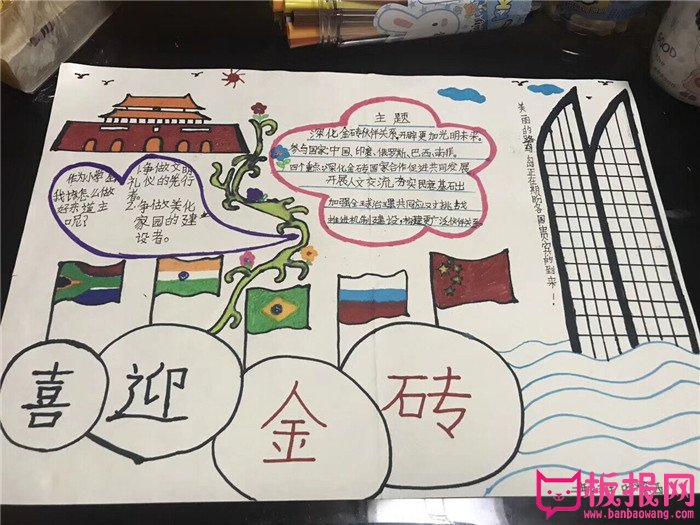 主题
深化金砖伙伴关系开辟更加光明未来。
参与国家:中国、印度、俄罗斯、巴西、南非。
四个重点:深化金砖国家合作促进共同发展
开展人文交流,夯实民意基石出
加强全球治理共同应对挑战
推进机制建设,构建更广泛伙伴关系
作为小学生
我该怎么做
好东道主
呢?
1.争做文明
礼仪的先行
者。
2.争做美化
家园的建
设者。
美丽的鹭岛正在期盼各国贵宾的到来!
喜
迎
金
砖
板报网
www.banbaowang.com